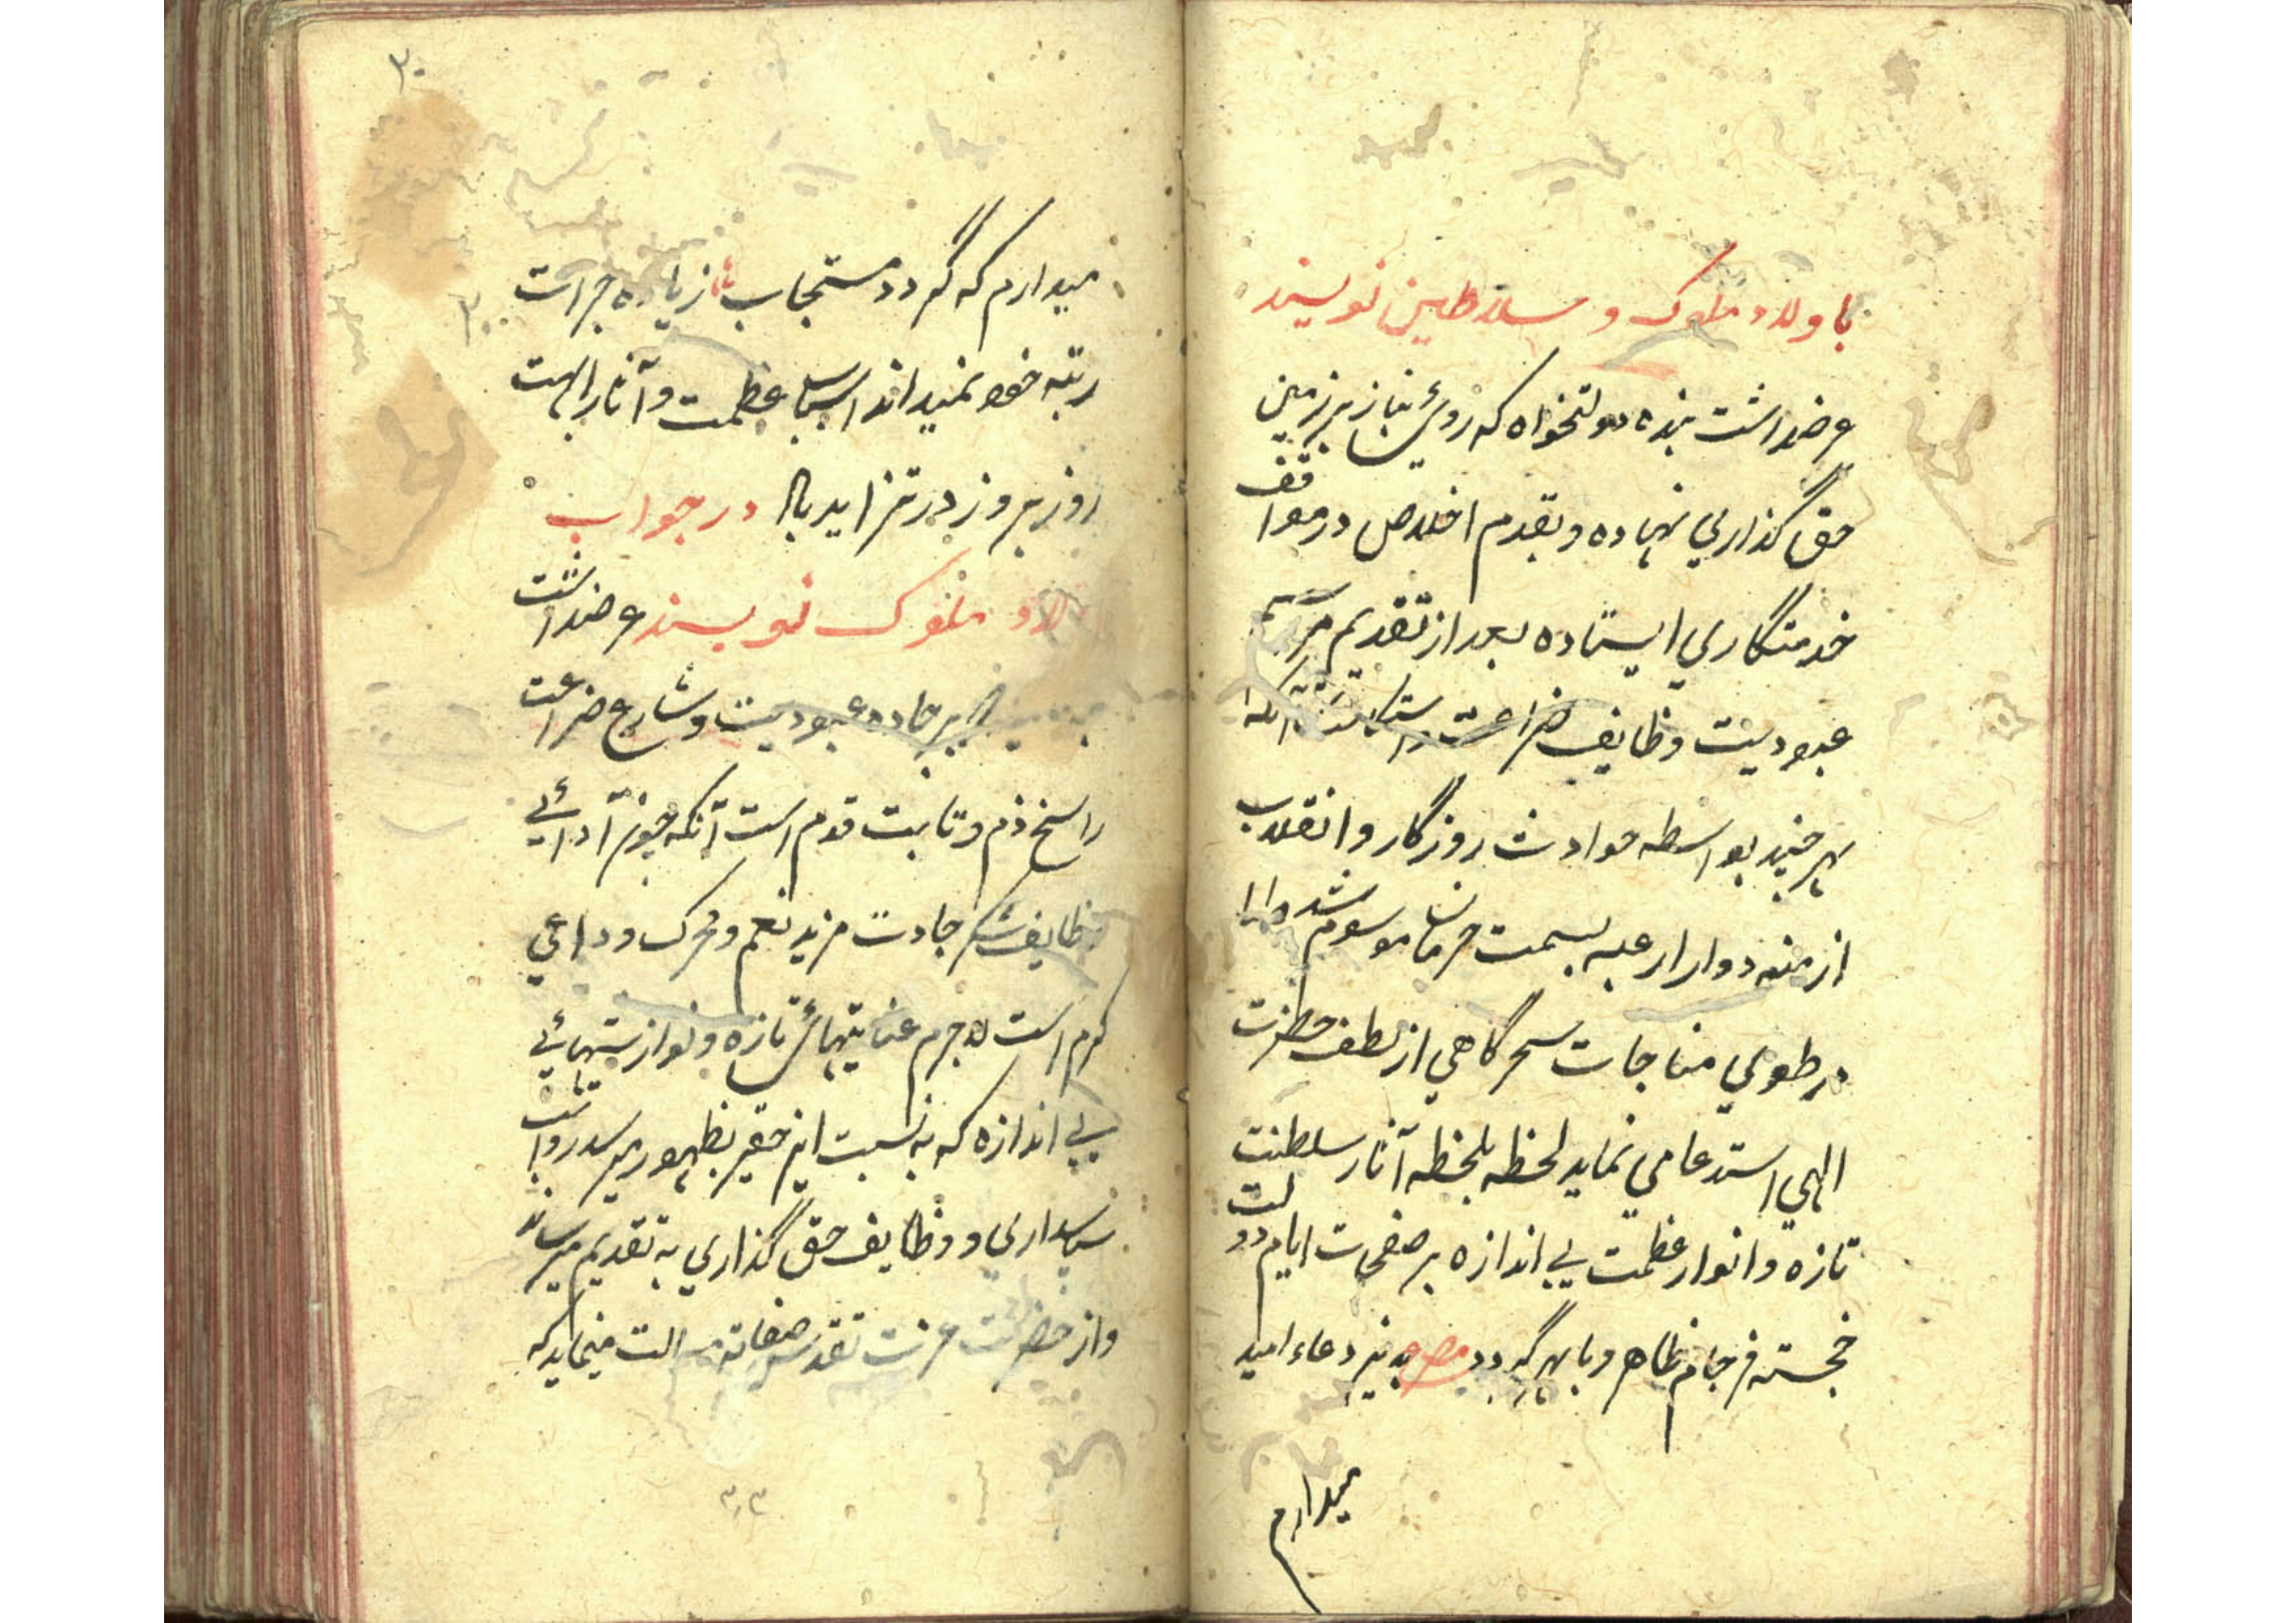 باولاد ملوک و سلاطین نویسند
عرضداشت بنده دولتخواه که روئ نیاز بر زمین
حق گذاری نهاده و بقدم اخلاص در مواقف
خدمتگاری ایستاده بعد از تقدیم مراسم
عبودیت وظایف ضراعت آنکه
هر چند بواسطه حوادث روزگار و انقلاب
ازمنه دوار ارعبه بسمت حرمان موسوم شد اما
در طوی مناجات سحرگاهی از لطف حضرت
الهی استدعا می نماید لحظه بلحظه آثار سلطنت
تازه و انوار عظمت بی اندازه بر صفحات ایام دولت
خجسته فرجام ظاهر و باهر گردد مصرع پذیر دعاء امید
میدارم
۲۰
میدارم که گردد مستجاب زیاده جرات
رتبه خود نمیداند اسباب عظمت و آثار ابهت
روز بروز در تزاید باد در جواب
لاد ملوک نویسند عرضداشت
بر جاده عبودیت و شارع ضراعت
راسخ دم و ثابت قدم است آنکه چون ادائی
وظایف شکر جاذب مزید نعم و محرک دواعی
کرم است لاجرم عنایتهائ تازه و نوازشهائی
بی اندازه که به نسبت این حقیر بظهور میرسد رواتب
سپاسداری و وظایف حق گذاری به تقدیم میرساند
و از حضرت عزت تقدس صفاته مسالت مینماید که